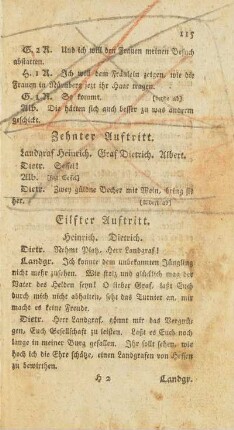 115
G. z R. Und ich will den Frauen meinen Besuch
abstatten.
H. z R. Ich will dem Fräulein zeigen, wie die
Frauen in Nürnberg jezt ihr Haar tragen.
G. z R. So kommt. (beyde ab)
Alb. Die hätten sich auch besser zu was anderm
geschickt.
Zehnter Auftritt.
Landgraf Heinrich. Graf Dietrich. Albert.
Dietr. Sessel!
Alb.
Dietr. Zwey güldne Becher mit Wein, bring sie
her. (Albert ab)
Eilfter Auftritt.
Heinrich. Dietrich.
Dietr. Nehmt Platz, Herr Landgraf!
Landgr. Ich konnte dem unbekannten Jüngling
nicht mehr zusehen. Wie stolz und glücklich mag der
Vater des Helden seyn! O lieber Graf, laßt Euch
durch mich nicht abhalten, seht das Turnier an, mir
macht es keine Freude.
Dietr. Herr Landgraf, gönnt mir das Vergnü-
gen, Euch Gesellschaft zu leisten. Laßt es Euch noch
lange in meiner Burg gefallen. Ihr sollt sehen, wie
hoch ich die Ehre schätze, einen Landgrafen von Hessen
zu bewirthen.
H 2 Landgr.